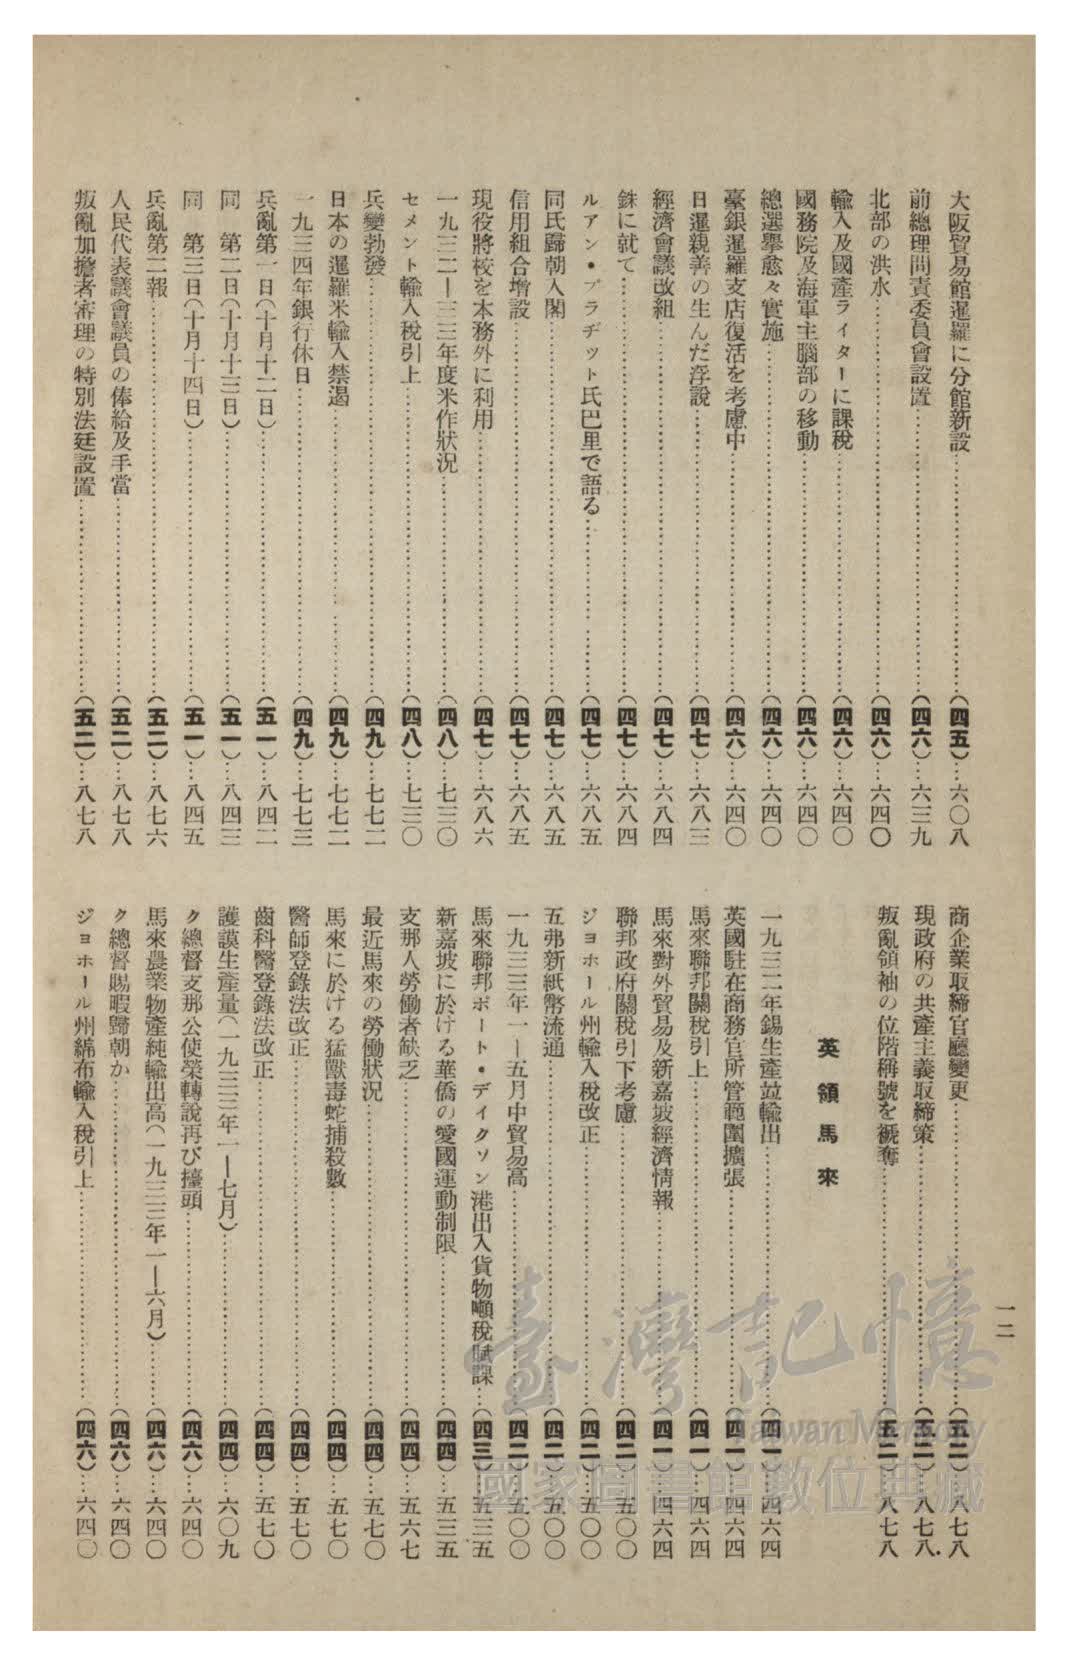 一二
大阪貿易館暹羅に分館新設……(四五)…六〇八
前總理問責委員會設置……(四六)…六三九
北部の洪水……(四六)…六四〇
輸入及國產ライターに課稅……(四六)…六四〇
國務院及海軍主腦部の移動……(四六)…六四〇
總選擧愈々實施……(四六)…六四〇
臺銀暹羅支店復活を考慮中……(四六)…六四〇
日暹親善の生んだ浮說……(四七)…六八三
經濟會議改組……(四七)…六八四
銖に就て……(四七)…六八四
ルアン・プラヂット氏巴里で語る……(四七)…六八五
同氏歸朝入閣……(四七)…六八五
信用組合增設……(四七)…六八五
現役將校を本務外に利用……(四七)…六八六
一九三二—三三年度米作狀況……(四八)…七三〇
セメント輸入稅引上……(四八)…七三〇
兵變勃發……(四九)…七七二
日本の暹羅米輸入禁遏……(四九)…七七二
一九三四年銀行休日……(四九)…七七三
兵亂第一日(十月十二日)……(五一)…八四二
同 第二日(十月十三日)……(五一)…八四三
同 第三日(十月十四日)……(五一)…八四五
兵亂第二報……(五二)…八七六
人民代表議會議員の俸給及手當……(五二)…八七八
叛亂加擔者審理の特別法廷設置……(五二)…八七八
商企業取締官廳變更……(五二)…八七八
現政府の共產主義取締策……(五二)…八七八
叛亂領袖の位階稱號を褫奪……(五二)…八七八
英領馬來
一九三二年錫生產並輸出……(四一)…四六四
英國駐在商務官所管範圍擴張……(四一)…四六四
馬來聯邦關稅引上……(四一)…四六四
馬來對外貿易及新嘉坡經濟情報……(四一)…四六四
聯邦政府關稅引下考慮……(四二)…五〇〇
ジョホール州輸入稅改正……(四二)…五〇〇
五弗新紙幣流通……(四二)…五〇〇
一九三三年一—五月中貿易高……(四二)…五〇〇
馬來聯邦ポート・ディクソン港出入貨物噸稅賦課……(四三)…五三五
新嘉坡に於ける華僑の愛國運動制限……(四四)…五三五
支那人勞働者缺乏……(四四)…五六七
最近馬來の勞働狀況……(四四)…五七〇
馬來に於ける猛獸毒蛇捕殺數……(四四)…五七〇
醫師登錄法改正……(四四)…五七〇
齒科醫登錄法改正……(四四)…五七〇
護謨生產量(一九三三年一—七月)……(四四)…六〇九
ク總督支那公使榮轉說再び擡頭……(四六)…六四〇
馬來農業物產純輸出高(一九三三年一—六月)……(四六)…六四〇
ク總督賜暇歸朝か……(四六)…六四〇
ジョホール州綿布輸入稅引上……(四六)…六四〇
臺灣記憶
Taiwan Memory
國家圖書館數位典藏